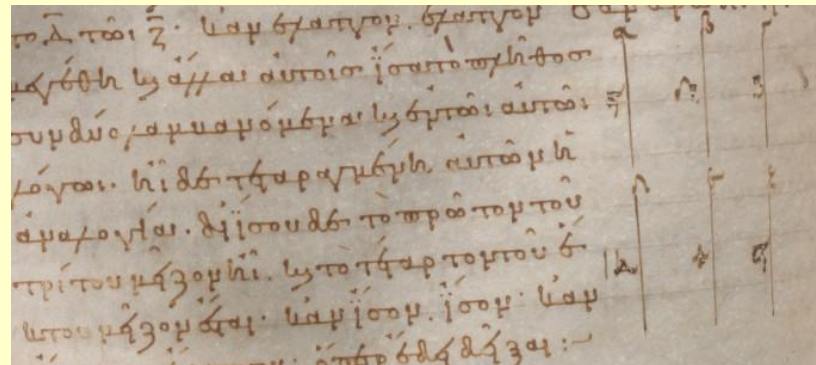 το Δ τῶι Ζ· κἂν ἔλαττον. ἔλαττον· ἐὰν ἄρα ἦι
μεγέθη καὶ ἄλλα αὐτοῖσ ἴσα τὸ πλῆθοσ
συνδύο λαμβανόμενα καὶ ἐν τῶι αὐτῶι
λόγωι· ἦι δὲ τεταραγμένη αὐτῶν ἡ
ἀναλογία. δι ἴσου δὲ τὸ πρῶτον τοῦ
τρίτου μεῖζον ἦι. καὶ τὸ τέταρτον τοῦ ἕ
κτου μεῖζον ἔσται· κἂν ἴσον. ἴσον· κἂν
ὅπερ ἔδει δεῖξαι:~
α β γ